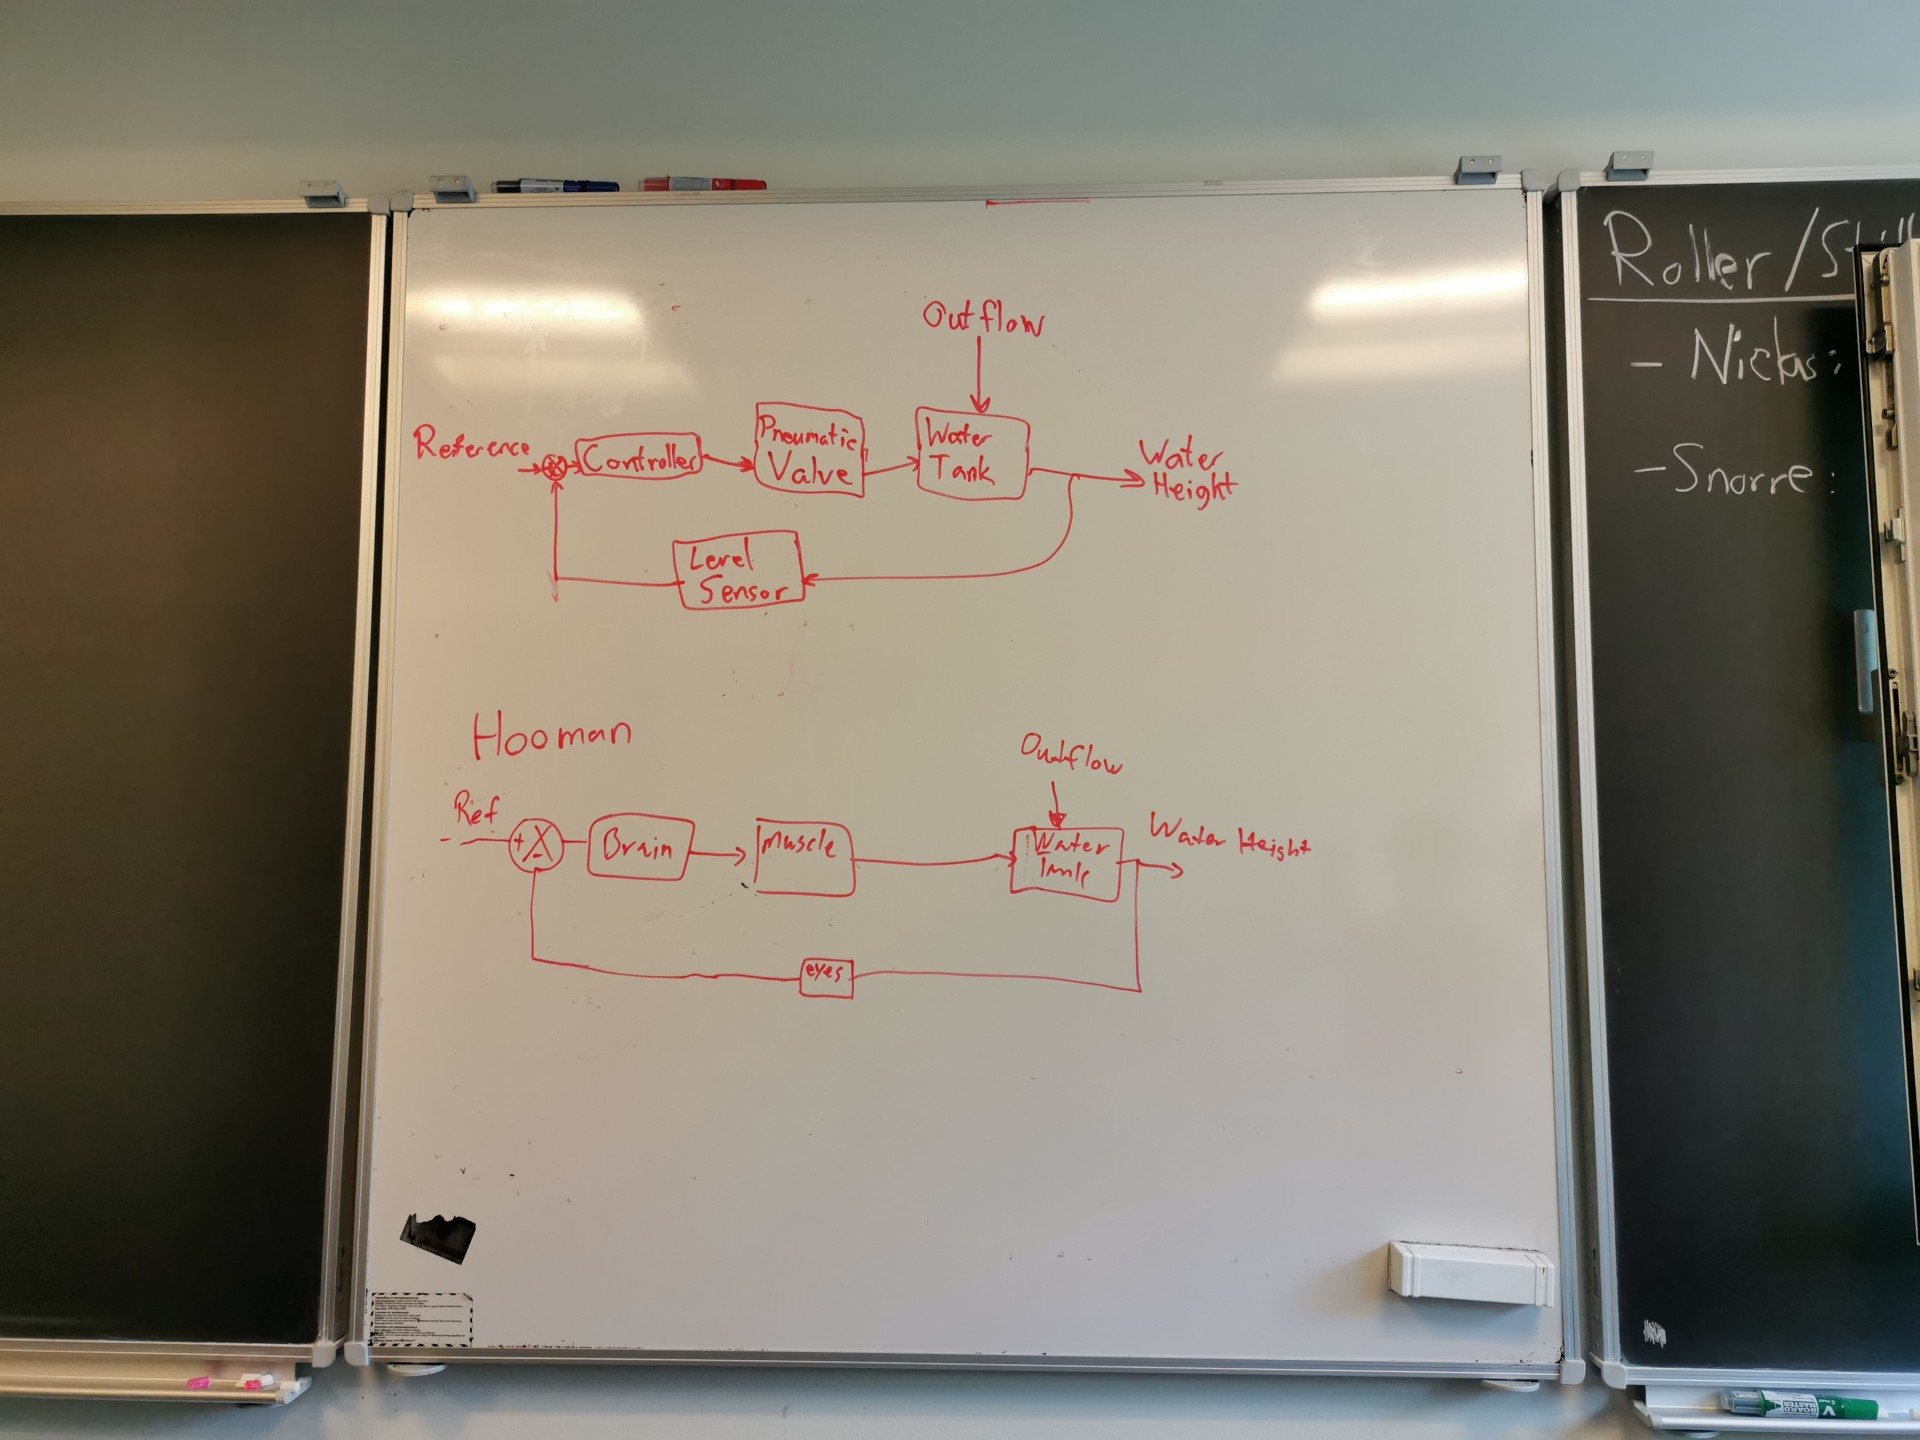 Outflow
Reference
Controller
Pneumatic
Valve
Water
Tank
Water
Height
Level
Sensor
Hooman
Outflow
Ref
+
-
Brain
Muscle
Water
Tank
Water Height
eyes
Roller/
- Nicklas:
- Snorre:
V
BOARD
MASTER